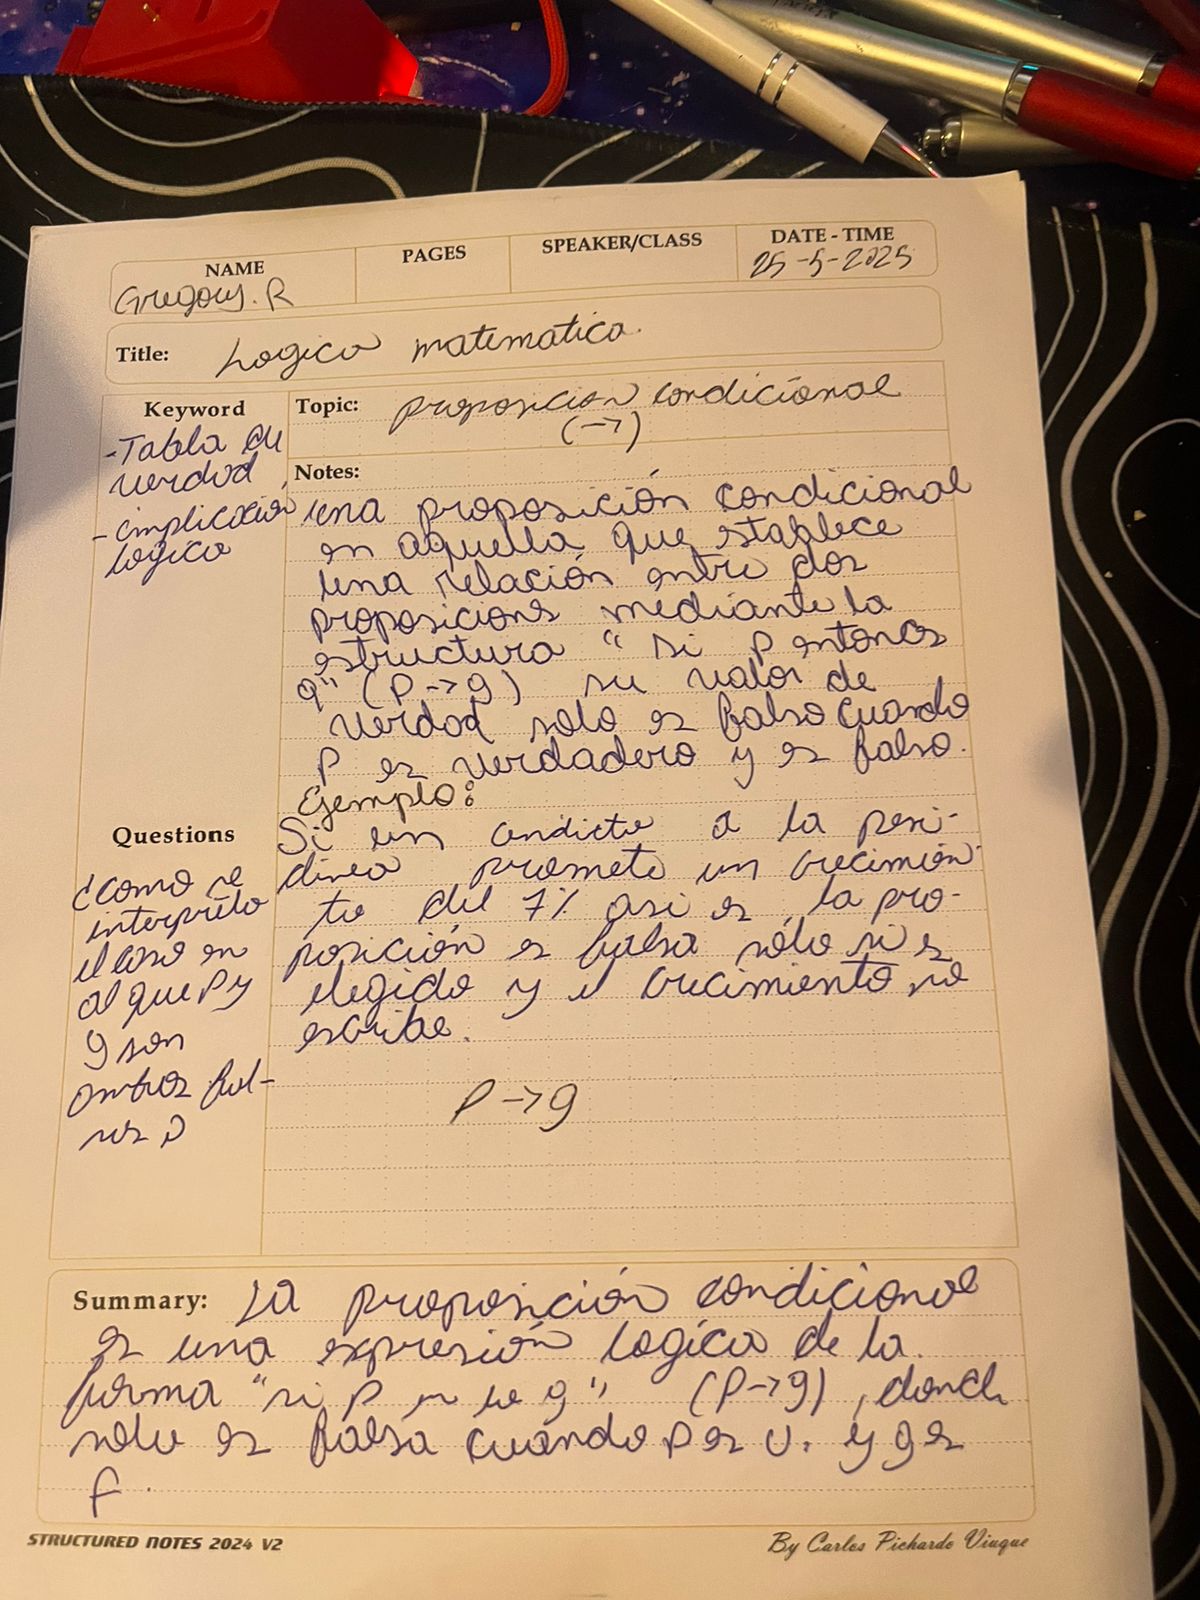 NAME
Gregory. R
PAGES
SPEAKER/CLASS
DATE - TIME
25-5-2025
Title: Logica matematica.
Keyword
-Tabla de
verdad
-implicación
logico
Topic: proposicion condicional
(→)
Notes:
una proposición condicional
en aquella que establece
una relación entre dos
proposicions mediante la
estructura "si p entonces
q" (P→q) su valor de
verdad solo es falso cuando
P es verdadero y es falso.
Ejemplo:
Si un a la
promete un crecimien-
to del 7% asi es, la pro-
posición es falsa sólo si es
elegido y el crecimiento no
escribe.
P→q
Questions
¿como se
interpreto
el caso en
al que P y
q son
ambos fal-
sos?
Summary: La proposición condicional
es una expresión logica de la
forma "si p q" (P→q), donde
solo es falsa cuando p es v. y q es
f.
STRUCTURED NOTES 2024 V2
By Carlos Pichardo Viuque